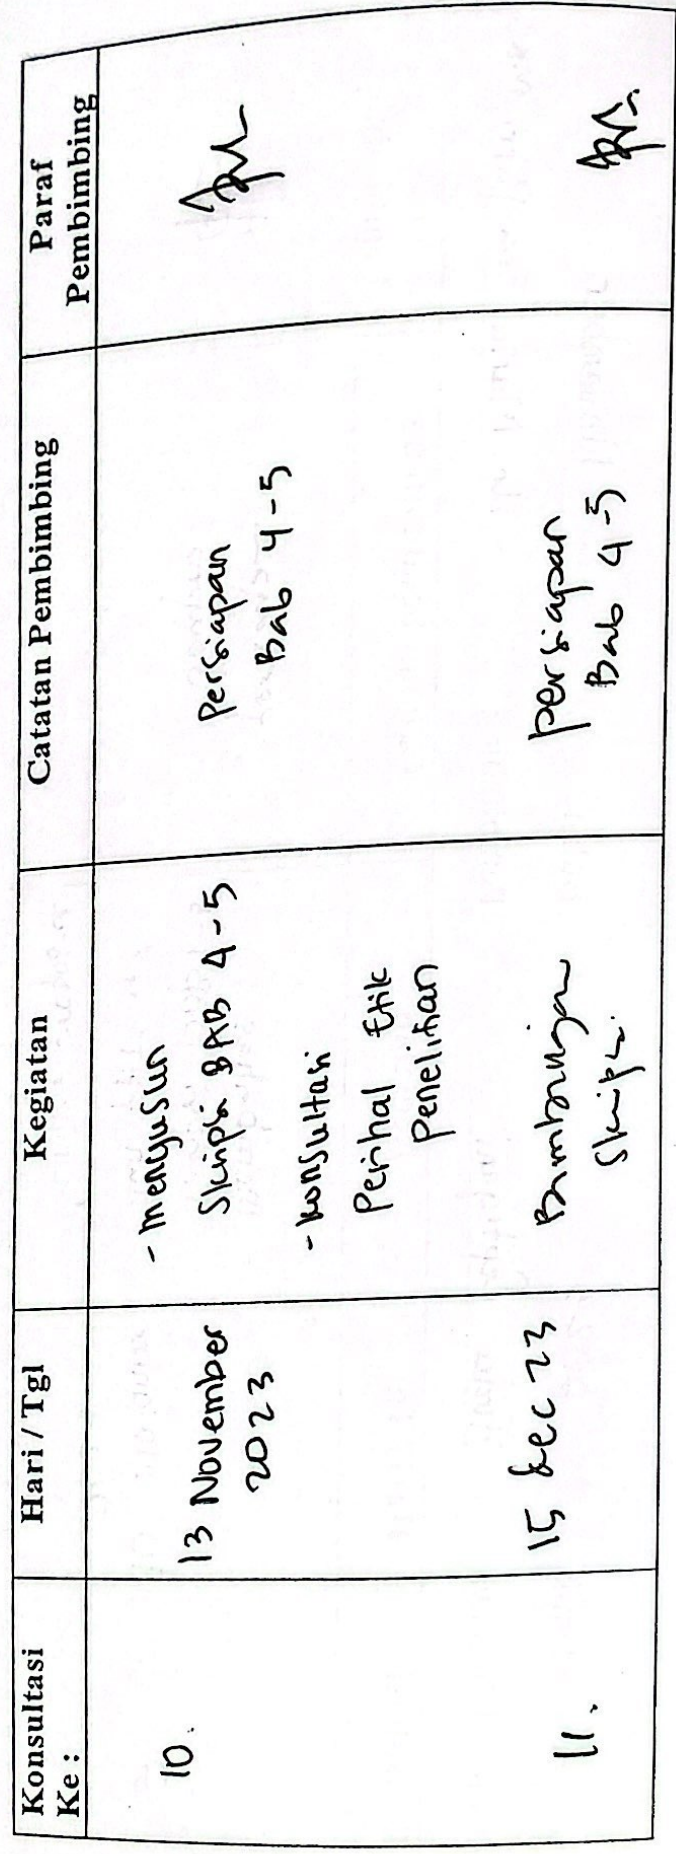 Konsultasi Ke :
Hari / Tgl
Kegiatan
Catatan Pembimbing
Paraf Pembimbing
10.
13 November
2023
- Menyusun
Skripsi BAB 4-5
- Konsultasi
Perihal Etik
Penelitian
Persiapan
Bab 4-5
11.
15 Dec 23
Bimbingan
Skripsi.
persiapan
Bab 4-5